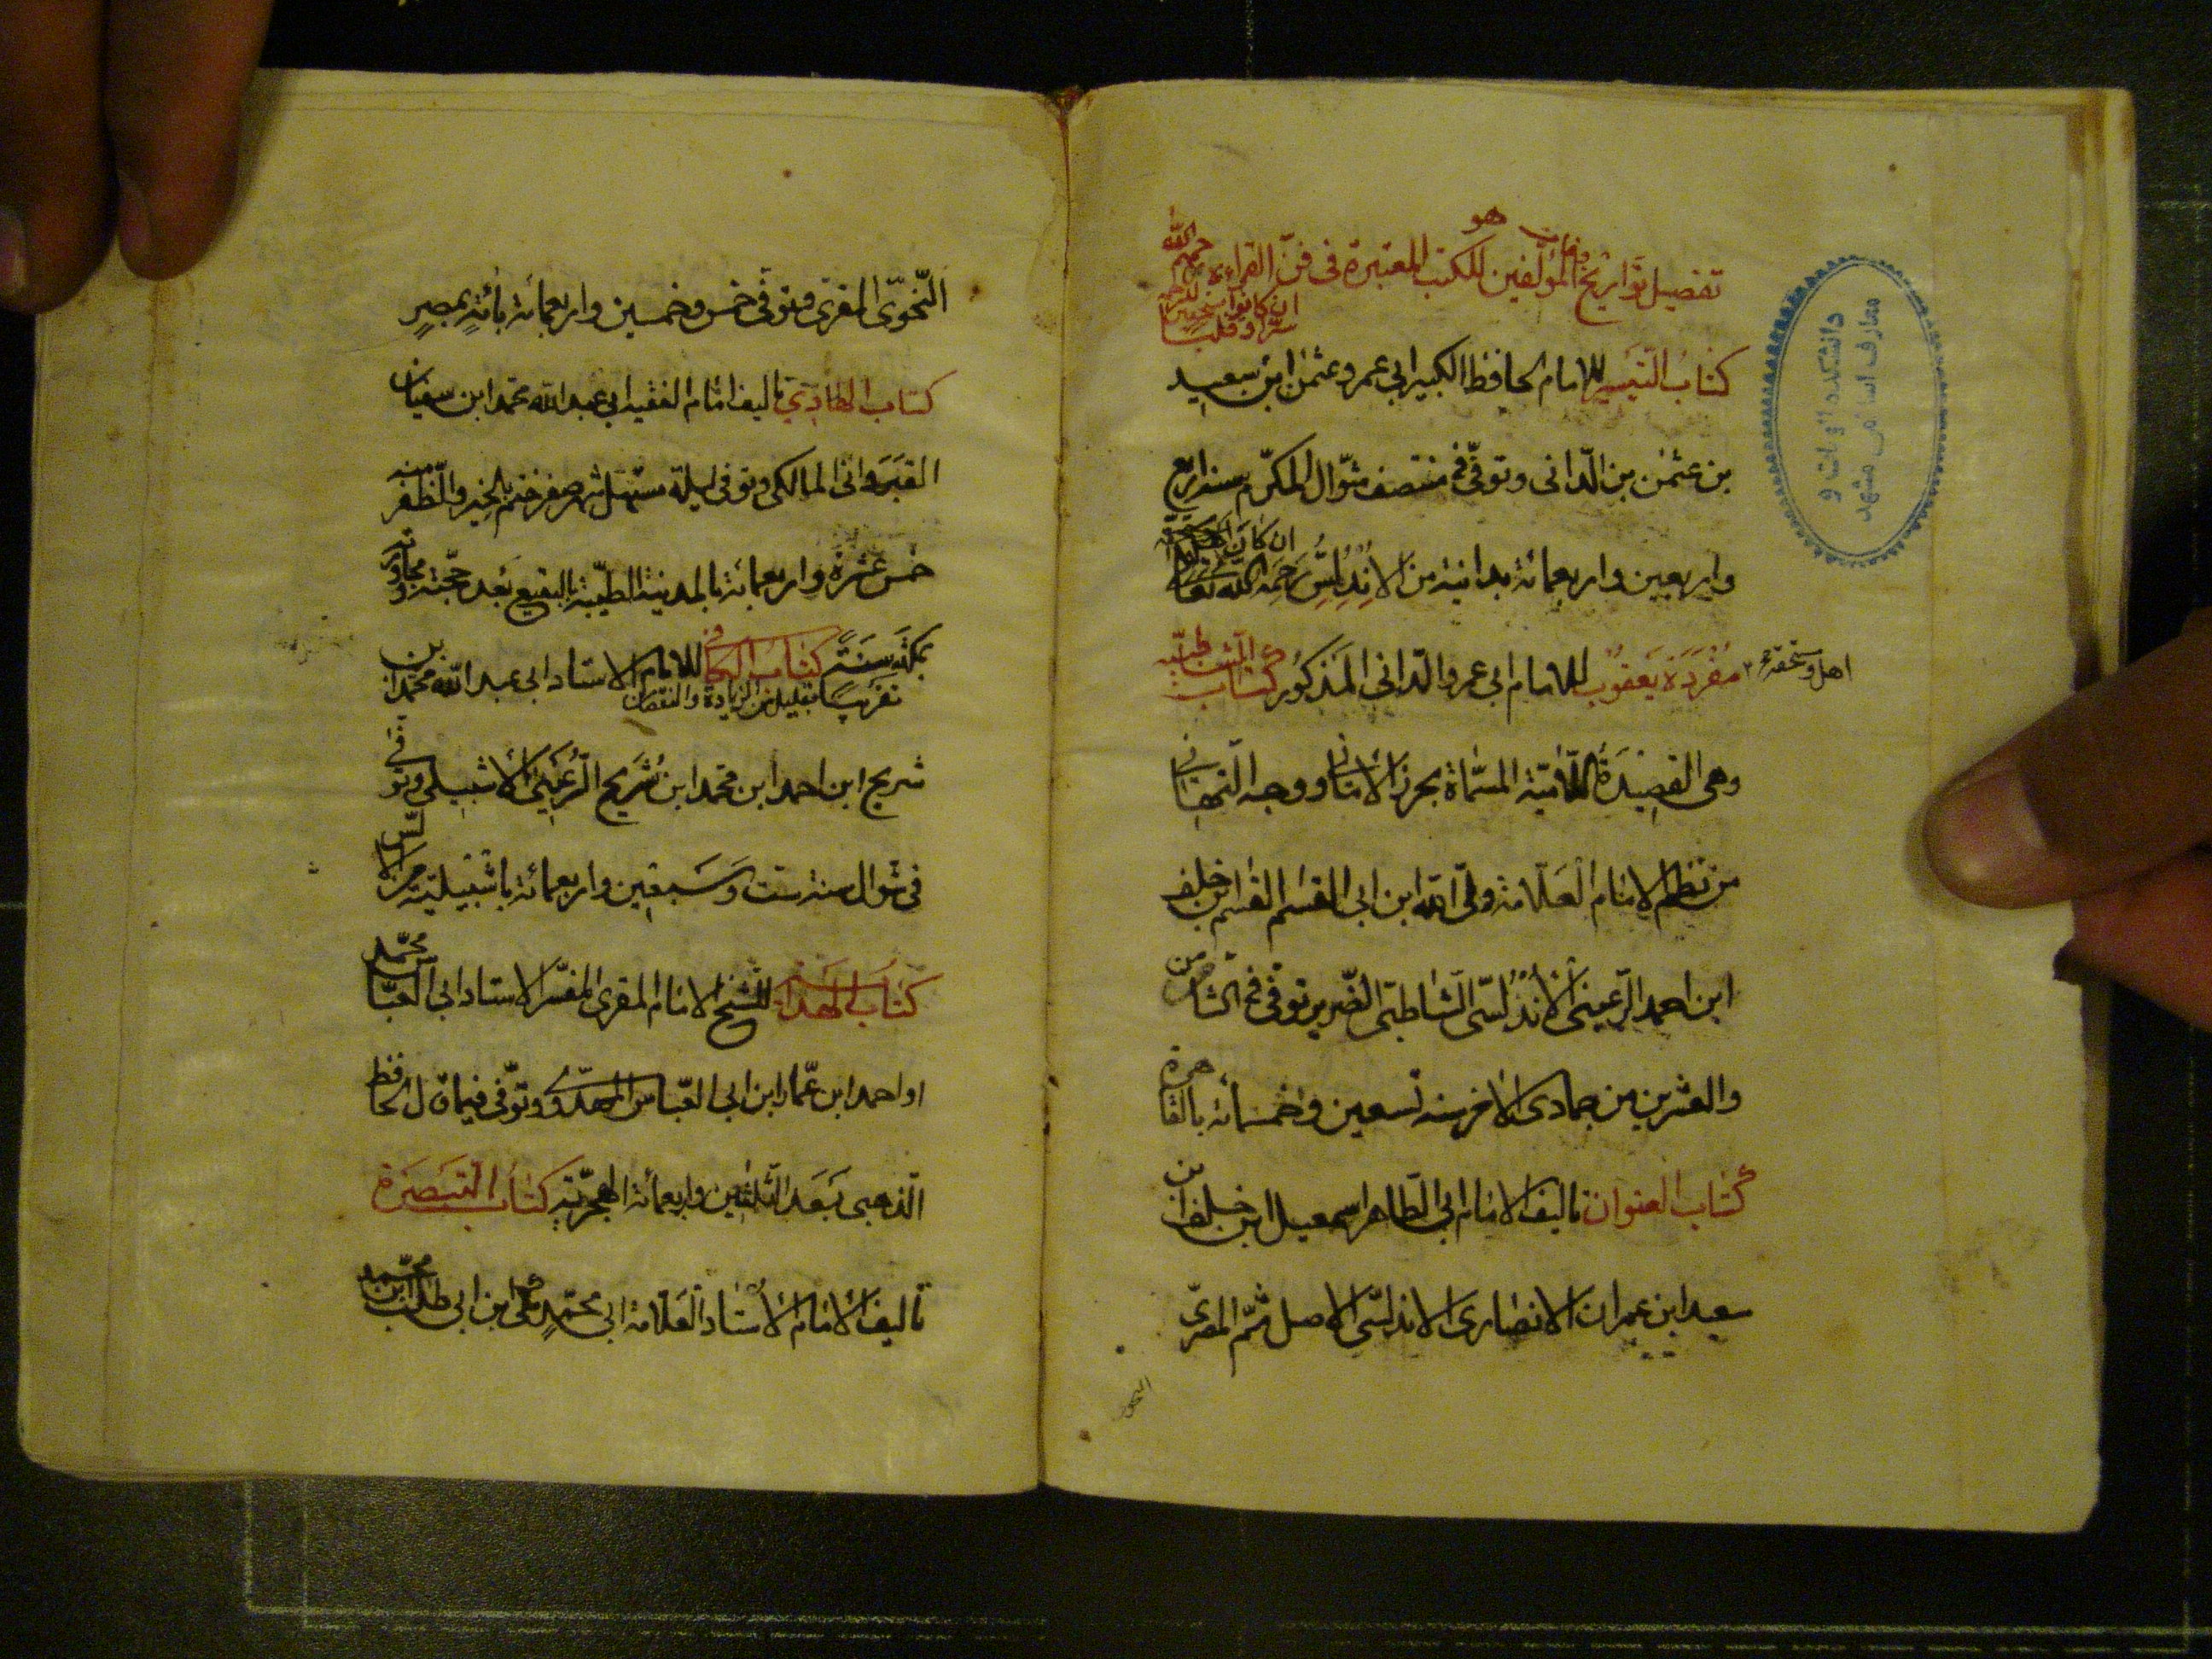 هو
تفضيل تواريخ وفات المؤلفين للكتب المعتبرة فى فن القراءة رحمهم الله
ان كانوا مستحقين للرحمة
سرا وقلبا
كتاب التيسير للامام الحافظ الكبير ابى عمرو عثمن ابن سعيد
بن عثمن بن الدانى وتوفى فى منتصف شوال المكرم سنه اربع
واربعين واربعمائة بدانية من الاندلس رحمه الله تعالى ان كان
اهل وستحقه
مفردة يعقوب للامام ابى عمرو الدانى المذكور كتاب الشاطبيه
وهى القصيدة اللامية المسماة بحرز الامانى ووجه التهانى
من نظم الامام العلامة ولى الله ابن ابى القسم القسم ابن خلف
ابن احمد الرعينى الاندلسى الشاطبى الضرير توفى فى الثامن
والعشرين من جمادى الاخر سنه تسعين وخمسمائة بالقاهرة
كتاب العنوان تاليف الامام ابى الطاهر اسمعيل ابن خلف ابن
سعيد ابن عمران الانصارى الاندلسى الاصل ثم المصرى
النحوى
النحوى المقرى وتوفى خمس وخمسين واربعمائة بمصر
كتاب الهادي تاليف امام الفقيه ابى عبد الله محمد ابن سفيان
القيروانى المالكى وتوفى ليلة مستهل شهر صفر ختم بالخير والظفر سنه
خمس عشرة واربعمائة بالمدينة الطيبة بالبقيع بعد حجته ومجاورته
بمكة سنة كتاب الكافى للامام الاستاد ابى عبد الله محمد ابن
تقريبا بقليل من الزيادة والنقصان
شريح ابن احمد ابن محمد ابن شريح الرعينى الاشبيلى وتوفى
فى شوال سنه ست وسبعين واربعمائة باشبيلية من الاندلس
كتاب الهداية للشيخ الامام المقرى المفسر الاستاد ابى العباس محمد
او احمد ابن عمار ابن ابى العباس المهدوى وتوفى فيما قال الحافظ
الذهبى بعد الثلثين واربعمائة الهجرية كتاب التبصرة
تاليف الامام الاستاد العلامة ابى محمد مكى ابن ابى طالب ابن محمد
دانشكده الهيات و
معارف اسلامى مشهد